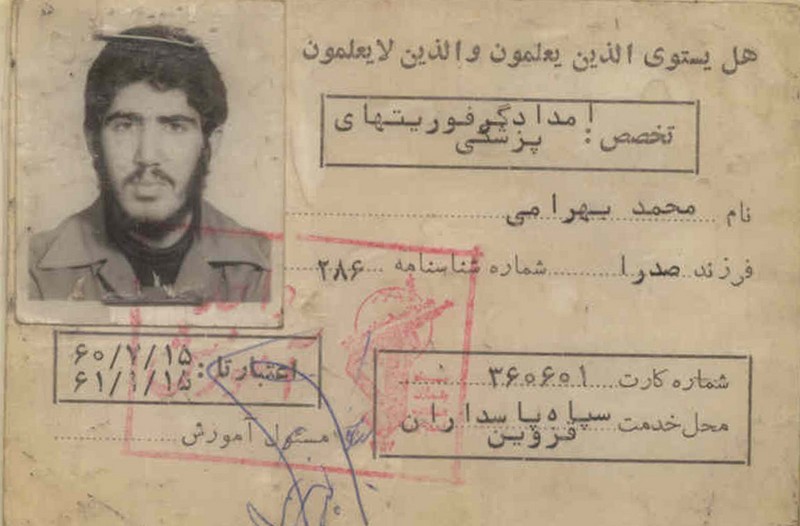 هل یستوی الذین یعلمون والذین لایعلمون
تخصص: امدادگرفوریتهای
پزشکی
نام محمد بهرامی
فرزند صدرا شماره شناسنامه ۲۸۶
شماره کارت ۳۶۰۶۰۱
محل خدمت سپاه پاسداران
قزوین
اعتبار تا: ۶۰/۷/۱۵
۶۱/۱/۱۵
مسئول آموزش